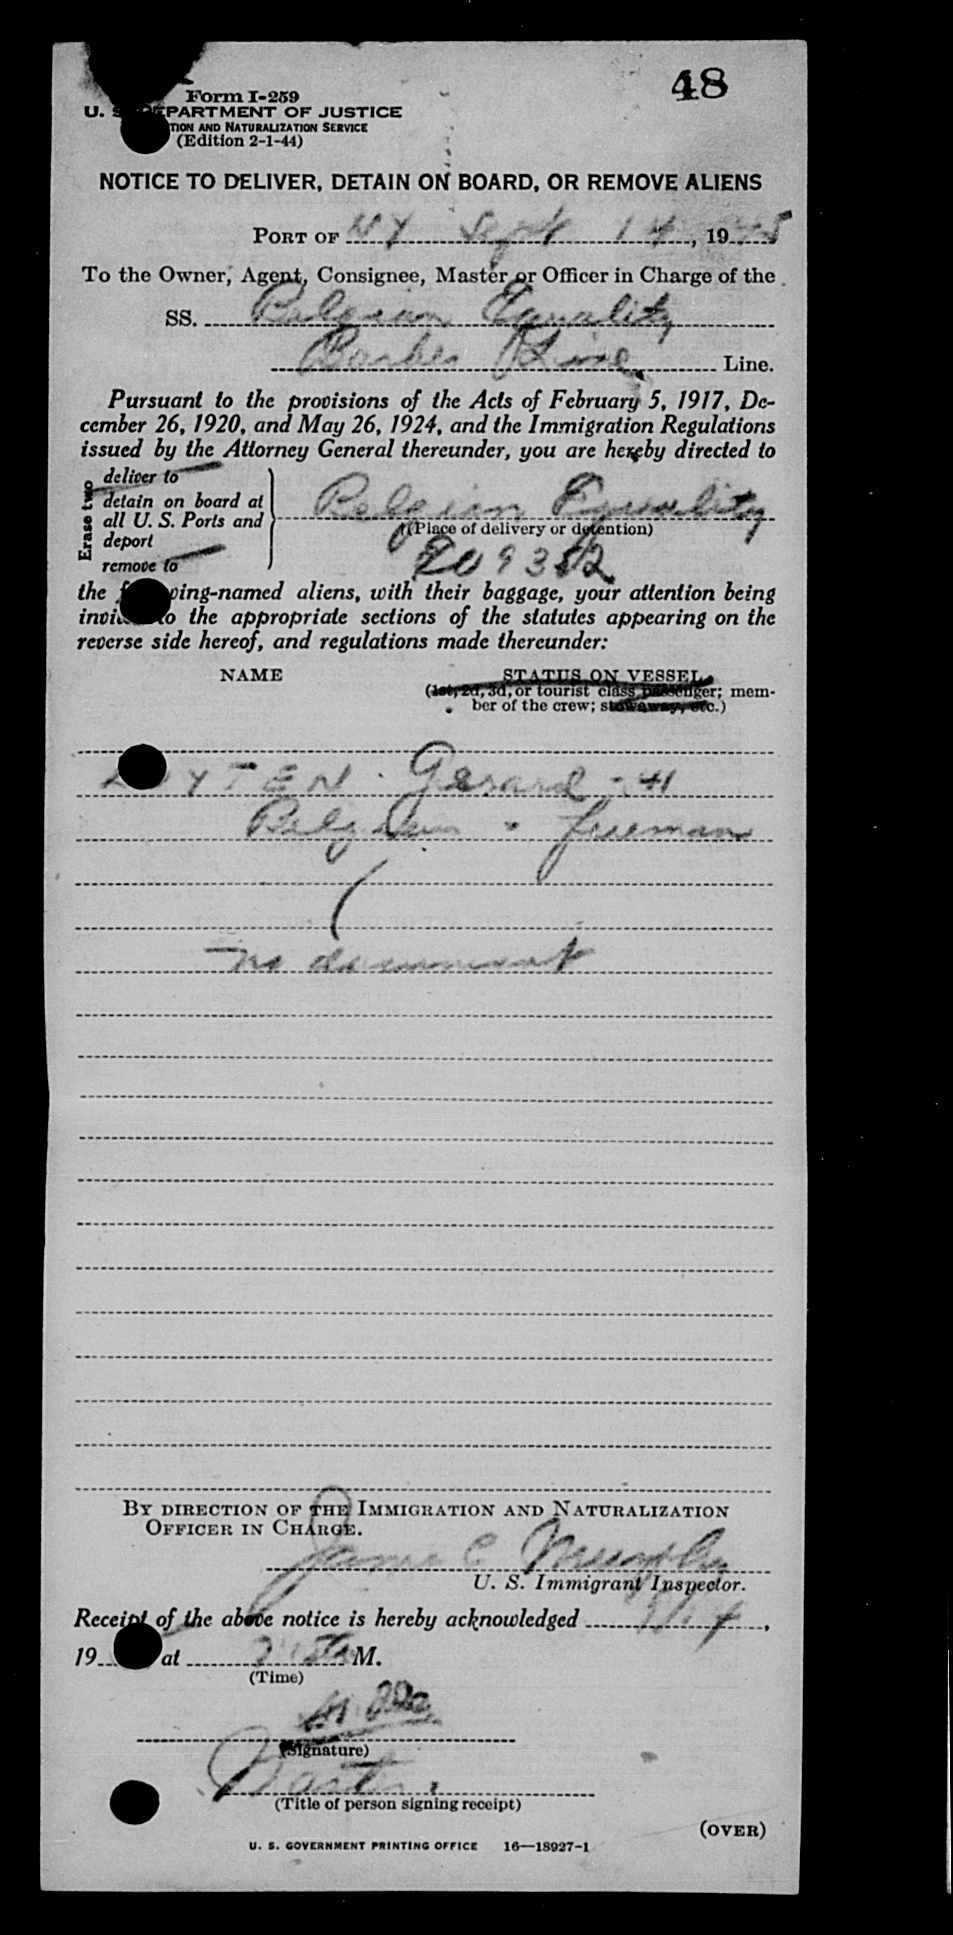 48
Form I-259
U. S. DEPARTMENT OF JUSTICE
TION AND NATURALIZATION SERVICE
(Edition 2-1-44)
NOTICE TO DELIVER, DETAIN ON BOARD, OR REMOVE ALIENS
PORT OF NY Sept 14, 1945
To the Owner, Agent, Consignee, Master or Officer in Charge of the
SS. Belgian Equality
Barber Line Line.
Pursuant to the provisions of the Acts of February 5, 1917, De-
cember 26, 1920, and May 26, 1924, and the Immigration Regulations
issued by the Attorney General thereunder, you are hereby directed to
Erase two
deliver to
detain on board at
all U. S. Ports and
deport
remove to
Belgian Equality
(Place of delivery or detention)
the following-named aliens, with their baggage, your attention being
invited to the appropriate sections of the statutes appearing on the
reverse side hereof, and regulations made thereunder:
NAME STATUS ON VESSEL
(1st, 2d, 3d, or tourist class passenger; mem-
ber of the crew; stowaway, etc.)
YTEN Gerard - 41
Belgian - fireman
no document
BY DIRECTION OF THE IMMIGRATION AND NATURALIZATION
OFFICER IN CHARGE.
James C Murphy
U. S. Immigrant Inspector.
Receipt of the above notice is hereby acknowledged 9/14,
19 at M.
(Time)
(Signature)
Master
(Title of person signing receipt)
(OVER)
U. S. GOVERNMENT PRINTING OFFICE 16—18927-1